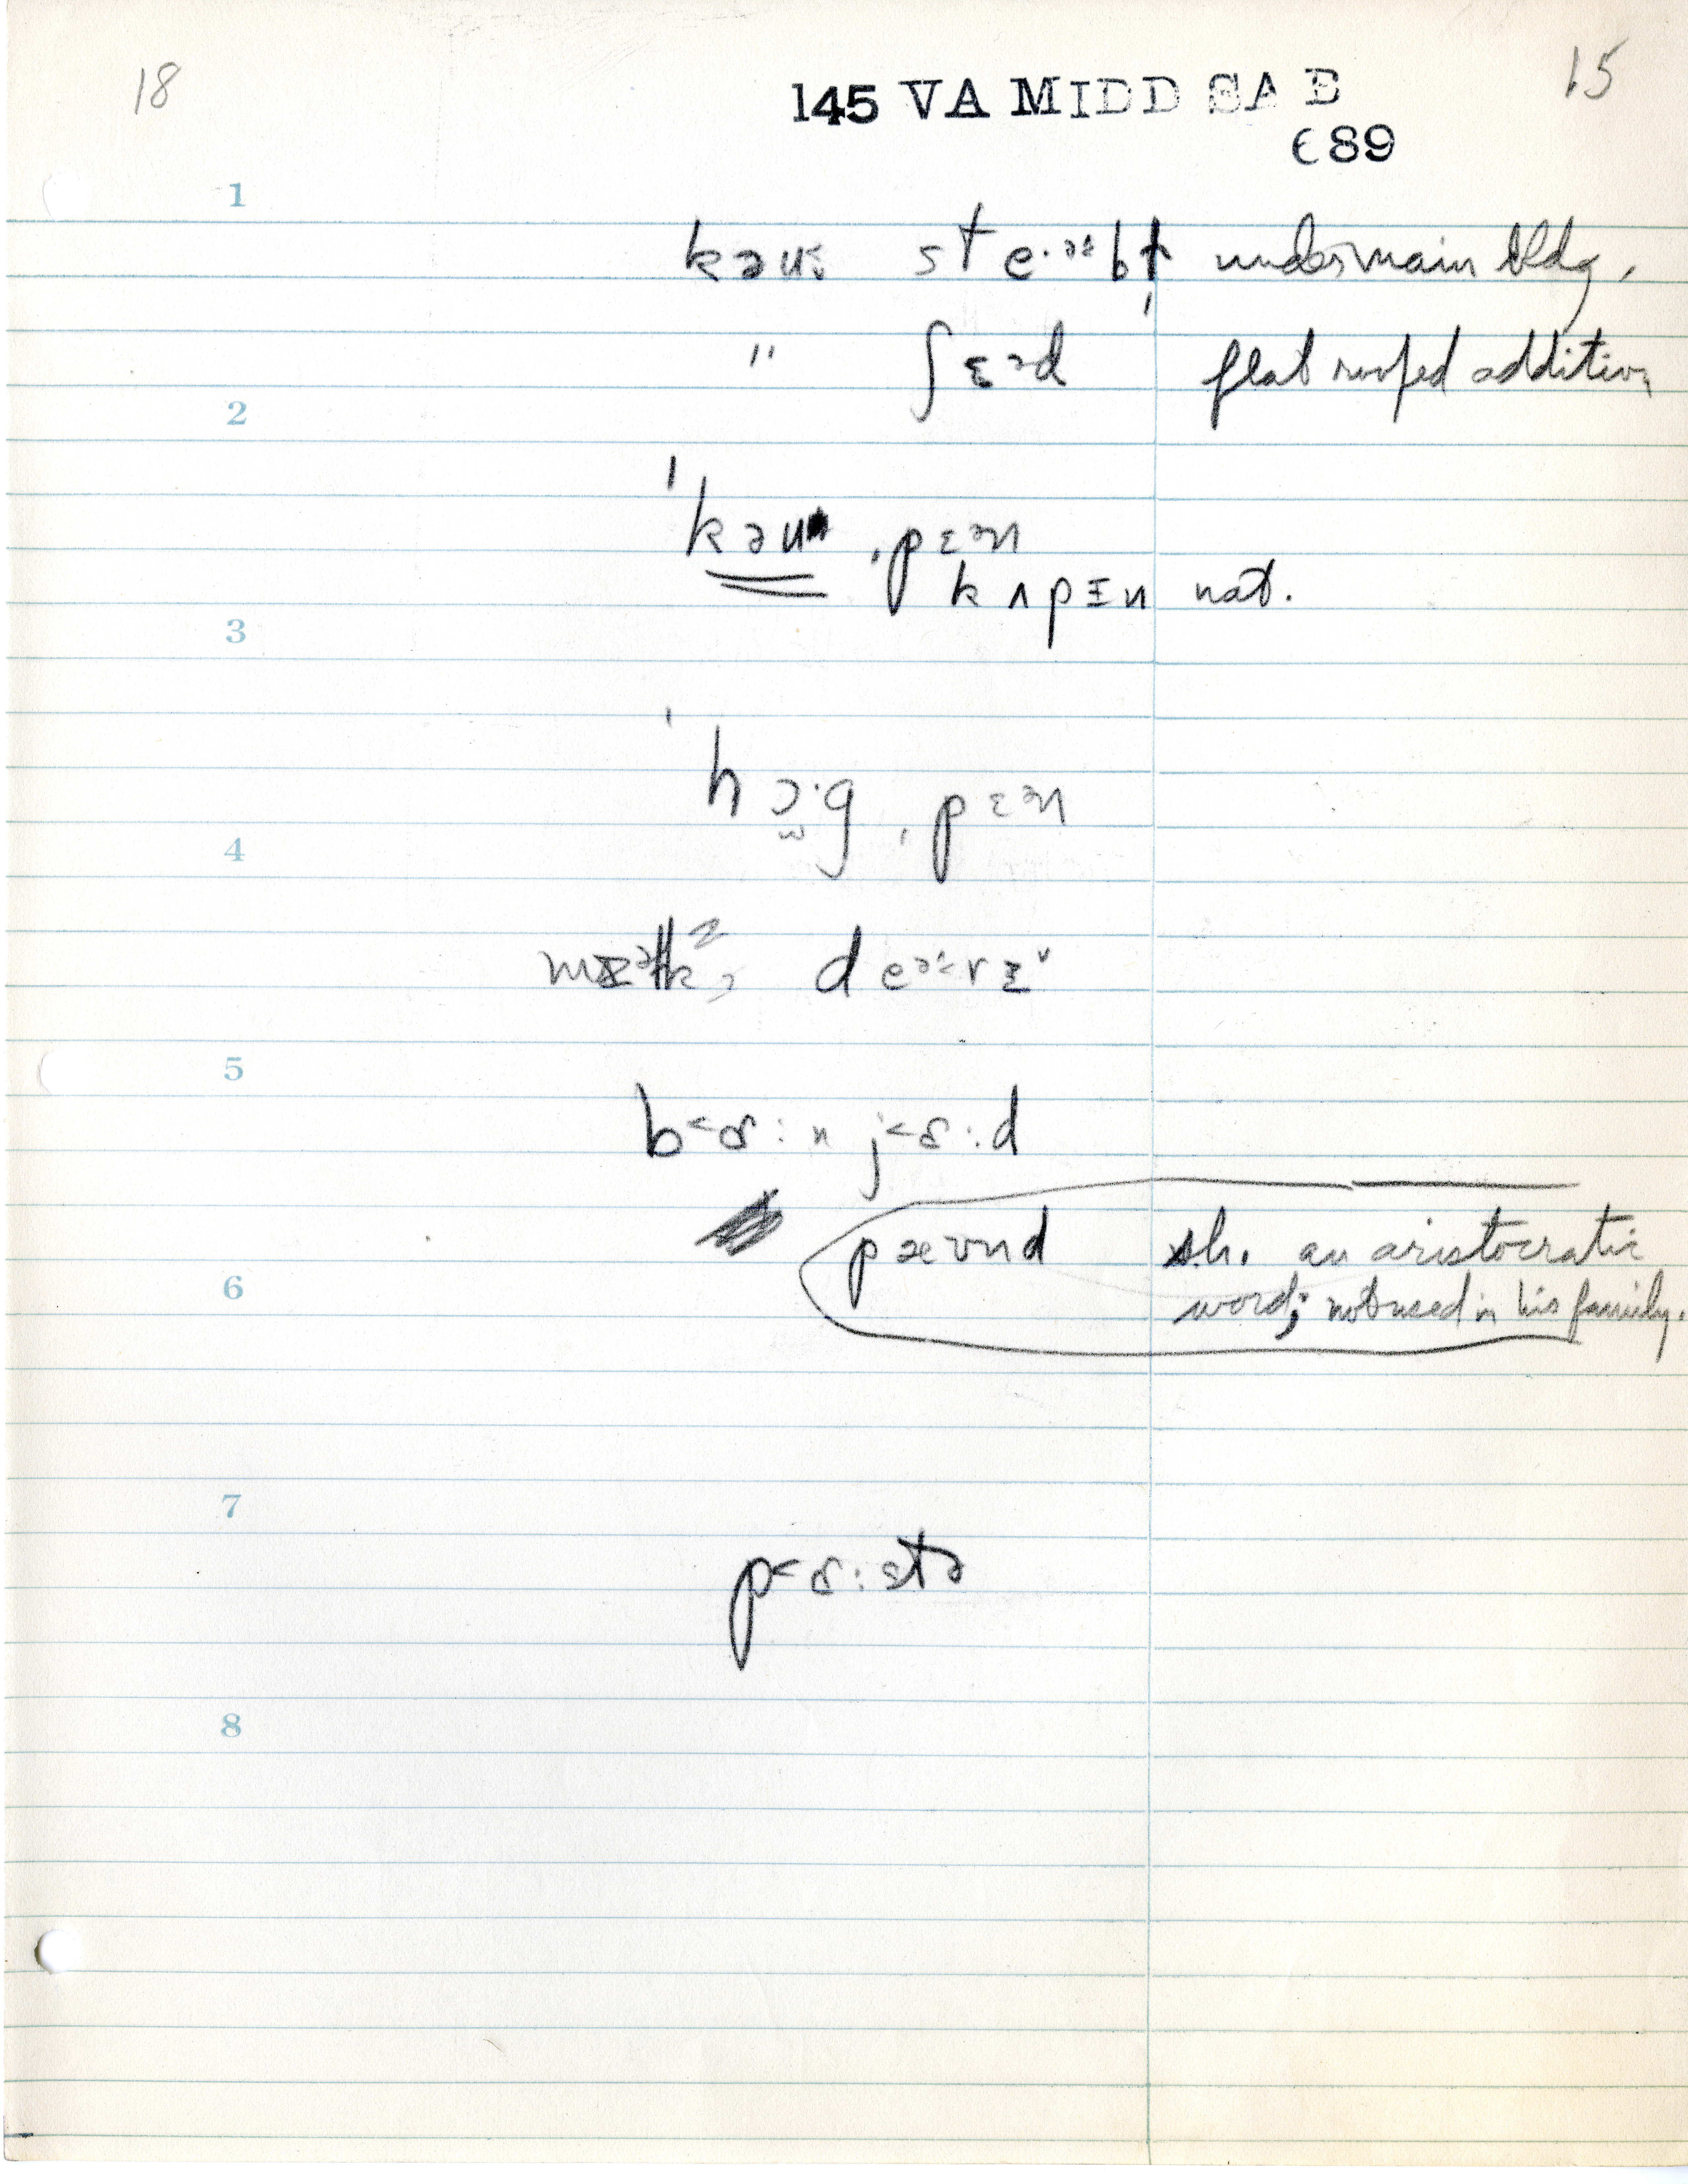 18
15
145 VA MIDD SA E
689
1
kəu˞ ste·ᵊᶤbł under main bldg.
" ʃɛᵊd flat roofed addition
2
ˈkəu ˌpɛᵊn
kʌpɪn nat.
3
ˈhɔ·g ˌpɛᵊn
4
deᵊᶤrɪ
5
b<ɑ:n j<ɑ:d
pæʊnd sh. an aristocratic
6
word; not used in his family.
7
p<ɑ:stə
8